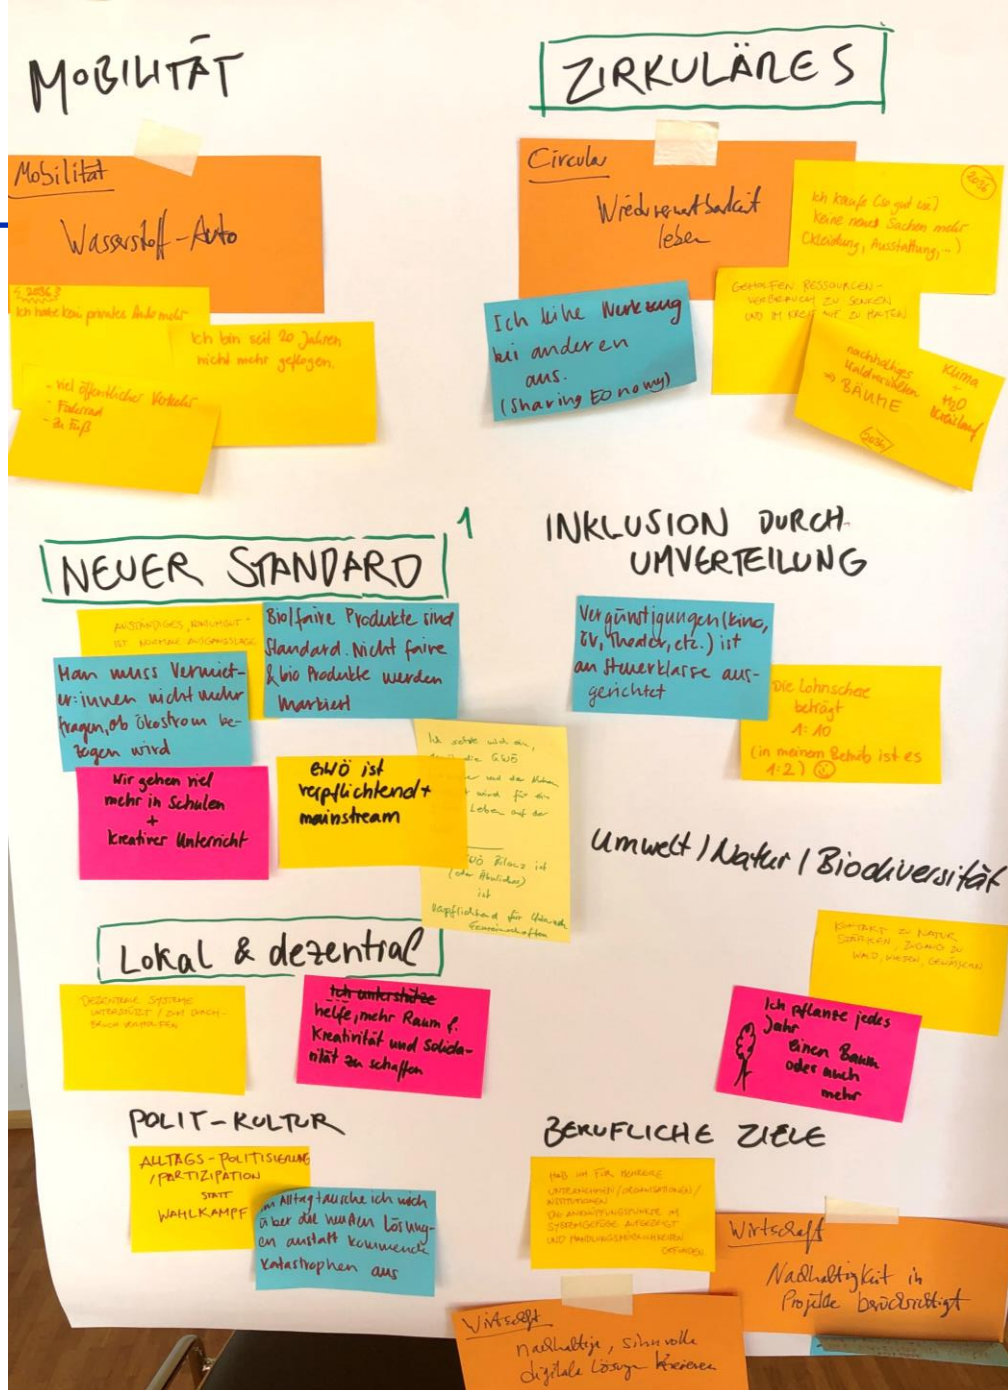 MOBILITÄT
Mobilität
Wasserstoff-Auto
2036
Ich habe kein privates Auto mehr
Ich bin seit 20 Jahren
nicht mehr geflogen.
- viel öffentlicher Verkehr
- Fahrrad
- zu Fuß
ZIRKULÄRES
Circular
Wiederverwertbarkeit
leben
2036
Ich kaufe (so gut wie)
keine neuen Sachen mehr
(Kleidung, Ausstattung, ...)
Ich leihe Werkzeug
bei anderen
aus.
(Sharing Economy)
GEHOLFEN RESSOURCEN-
VERBRAUCH ZU SENKEN
UND IM KREIS AUF ZU HALTEN
nachhaltiges
Wald
=> BÄUME
2036
Klima
+
H2O
Kreislauf
NEUER STANDARD
1
ANSTÄNDIGES
IST NORMALE AUSGANGSLAGE
Bio/faire Produkte sind
Standard. Nicht faire
& bio Produkte werden
markiert
Man muss Vermiet-
er:innen nicht mehr
fragen, ob Ökostrom be-
zogen wird
Wir gehen viel
mehr in Schulen
+
kreativer Unterricht
GWÖ ist
verpflichtend +
mainstream
Ich setze mich ein,
die GWÖ
und der
wird für ein
Leben auf der
Bilanz ist
(oder Ähnliches)
ist
verpflichtend für
INKLUSION DURCH
UMVERTEILUNG
Vergünstigungen (Kino,
ÖV, Theater, etc.) ist
an Steuerklasse aus-
gerichtet
Die Lohnschere
beträgt
1:10
(in meinem Betrieb ist es
1:2)
Umwelt / Natur / Biodiversität
KONTAKT ZU NATUR
STÄRKEN, ZUGANG ZU
WALD, WIESEN, GEWÄSSERN
Ich pflanze jedes
Jahr
einen Baum
oder auch
mehr
Lokal & dezentral
DEZENTRALE SYSTEME
UNTERSTÜTZT / ZUM DURCH-
BRUCH VERHOLFEN
Ich unterstütze
helfe, mehr Raum f.
Kreativität und Solida-
rität zu schaffen
POLIT-KULTUR
ALLTAGS-POLITISIERUNG
/PARTIZIPATION
STATT
WAHLKAMPF
Im Alltag tausche ich mich
über die neuen Lösung-
en anstatt kommende
Katastrophen aus
BERUFLICHE ZIELE
HAB ICH FÜR MEHRERE
UNTERNEHMEN/ORGANISATIONEN/
INSTITUTIONEN
DIE ANKNÜPFUNGSPUNKTE IM
SYSTEMGEFÜGE AUFGEZEIGT
UND HANDLUNGSMÖGLICHKEITEN
GEFUNDEN
Wirtschaft
Nachhaltigkeit in
Projekte berücksichtigt
Wirtschaft
nachhaltige, sinnvolle
digitale Lösungen kreieren